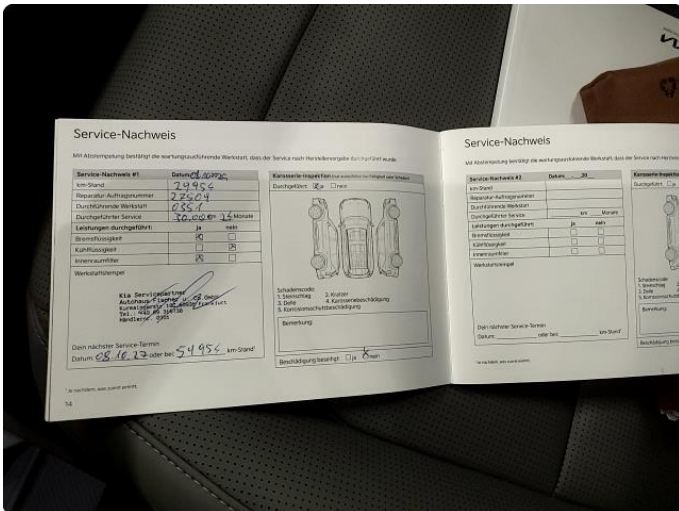 Service-Nachweis
Mit Abstempelung bestätigt die wartungsausführende Werkstatt, dass der Service nach Herstellervorgabe durchgeführt wurde.
Service-Nachweis #1
Datum
km-Stand
29954
Reparatur-Auftragsnummer
27504
Durchführende Werkstatt
0351
Durchgeführter Service
30.000 24 Monate
Leistungen durchgeführt:
ja
nein
Bremsflüssigkeit
Kühlflüssigkeit
Innenraumfilter
Werkstattstempel
Kia Servicepartner
Autohaus Fischer
Dein nächster Service-Termin
Datum: 08.10.27 oder bei: 54954 km-Stand¹
¹Je nachdem, was zuerst eintritt.
14
Karosserie-Inspektion
Durchgeführt: ja nein
Schadenscode:
1. Steinschlag 2. Kratzer
3. Delle 4. Karosseriebeschädigung
5. Korrosionsschutzbeschädigung
Bemerkung:
Beschädigung beseitigt: ja nein
Service-Nachweis
Mit Abstempelung bestätigt die wartungsausführende Werkstatt, dass der Service nach
Service-Nachweis #2
Datum __.__.20__
km-Stand
Reparatur-Auftragsnummer
Durchführende Werkstatt
Durchgeführter Service
km Monate
Leistungen durchgeführt:
ja nein
Bremsflüssigkeit
Kühlflüssigkeit
Innenraumfilter
Werkstattstempel
Dein nächster Service-Termin
Datum: oder bei: km-Stand¹
¹Je nachdem, was zuerst eintritt.
Durchgeführt:
Schadenscode:
1. Steinschlag
3. Delle
Bemerkung: